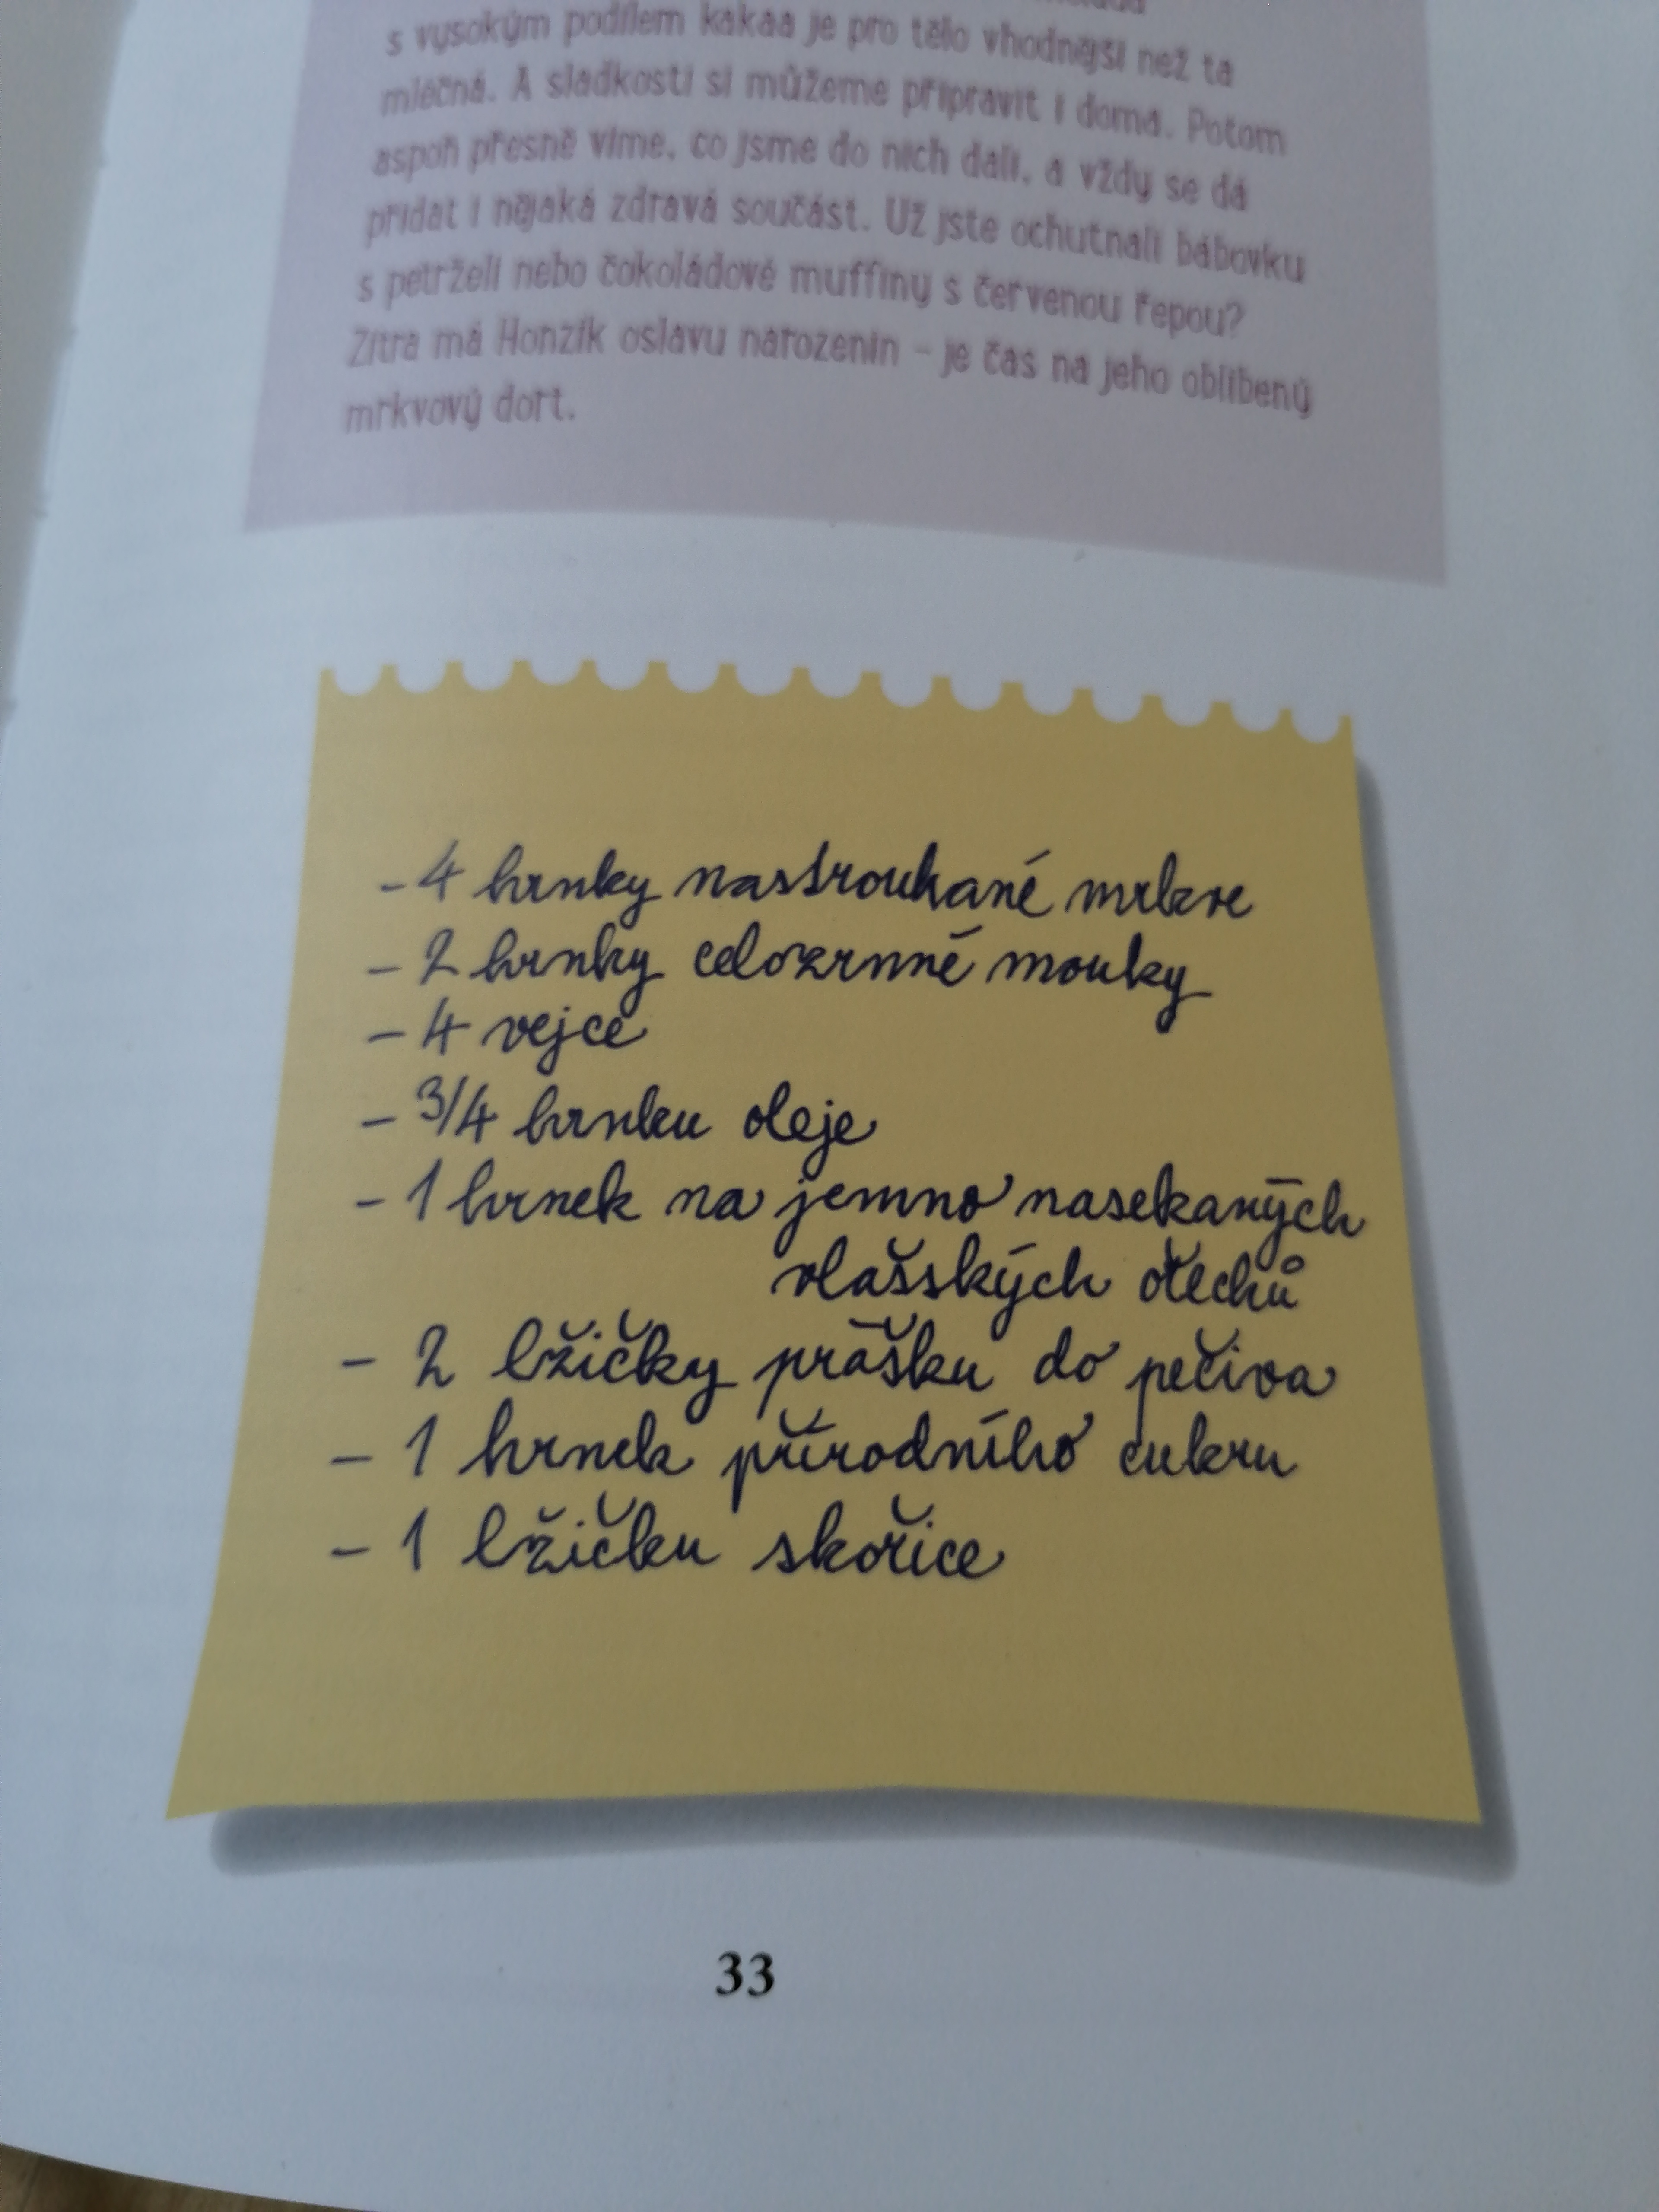 s vysokým podílem kakaa je pro tělo vhodnější než ta
mléčná. A sladkosti si můžeme připravit i doma. Potom
aspoň přesně víme, co jsme do nich dali, a vždy se dá
přidat i nějaká zdravá součást. Už jste ochutnali bábovku
s petrželí nebo čokoládové muffiny s červenou řepou?
Zítra má Honzík oslavu narozenin – je čas na jeho oblíbený
mrkvový dort.
- 4 hrnky nastrouhané mrkve
- 2 hrnky celozrnné mouky
- 4 vejce
- 3/4 hrnku oleje
- 1 hrnek na jemno nasekaných
vlašských ořechů
- 2 lžičky prášku do pečiva
- 1 hrnek přírodního cukru
- 1 lžičku skořice
33